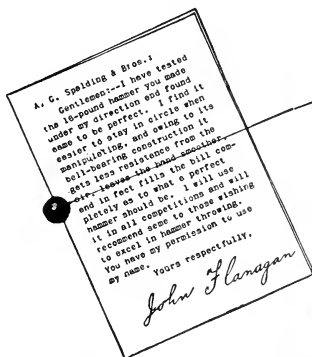 A. G. Spalding & Bros.:
Gentlemen:--I have tested
the 16-pound hammer you made
under my direction and found
same to be perfect. I find it
easier to stay in circle when
manipulating, and owing to its
ball-bearing construction it
gets less resistence from the
air, leaves the hand smoother,
and in fact fills the bill com-
pletely as to what a perfect
hammer should be. I will use
it in all competitions and will
recommend same to those wishing
to excel in hammer throwing.
You have my permission to use
my name. Yours respectfully,
John Flanagan